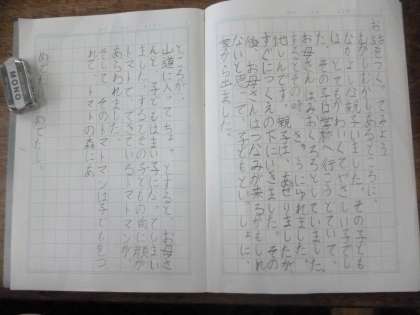 お話をつくってみよう
むかしむかしあるところに、
なかよし親子がいました。その子ども
は、とてもかわいくてやさしい子でし
た。その子は学校へ行こうとしていて、
お母さんはみおくろうとしていました。
まさにその時、きゅうにゆれました。
地しんです。親子は、あせりましたが
すぐにつくえの下にいきました。その
後、お母さんはつなみが来るかもしれ
ないと思って、子どもといっしょに、
家から出ました。
ところが、
山道に入ってちょっとすると、お母さ
んと子どもはまいごになってしまい
ました。すると、その子どもの前に顔が
トマトでできているトマトマンが
あらわれました。
そして、そのトマトマンは子どもをつ
れて、トマトの森に
めでたしめでたし。
MONO